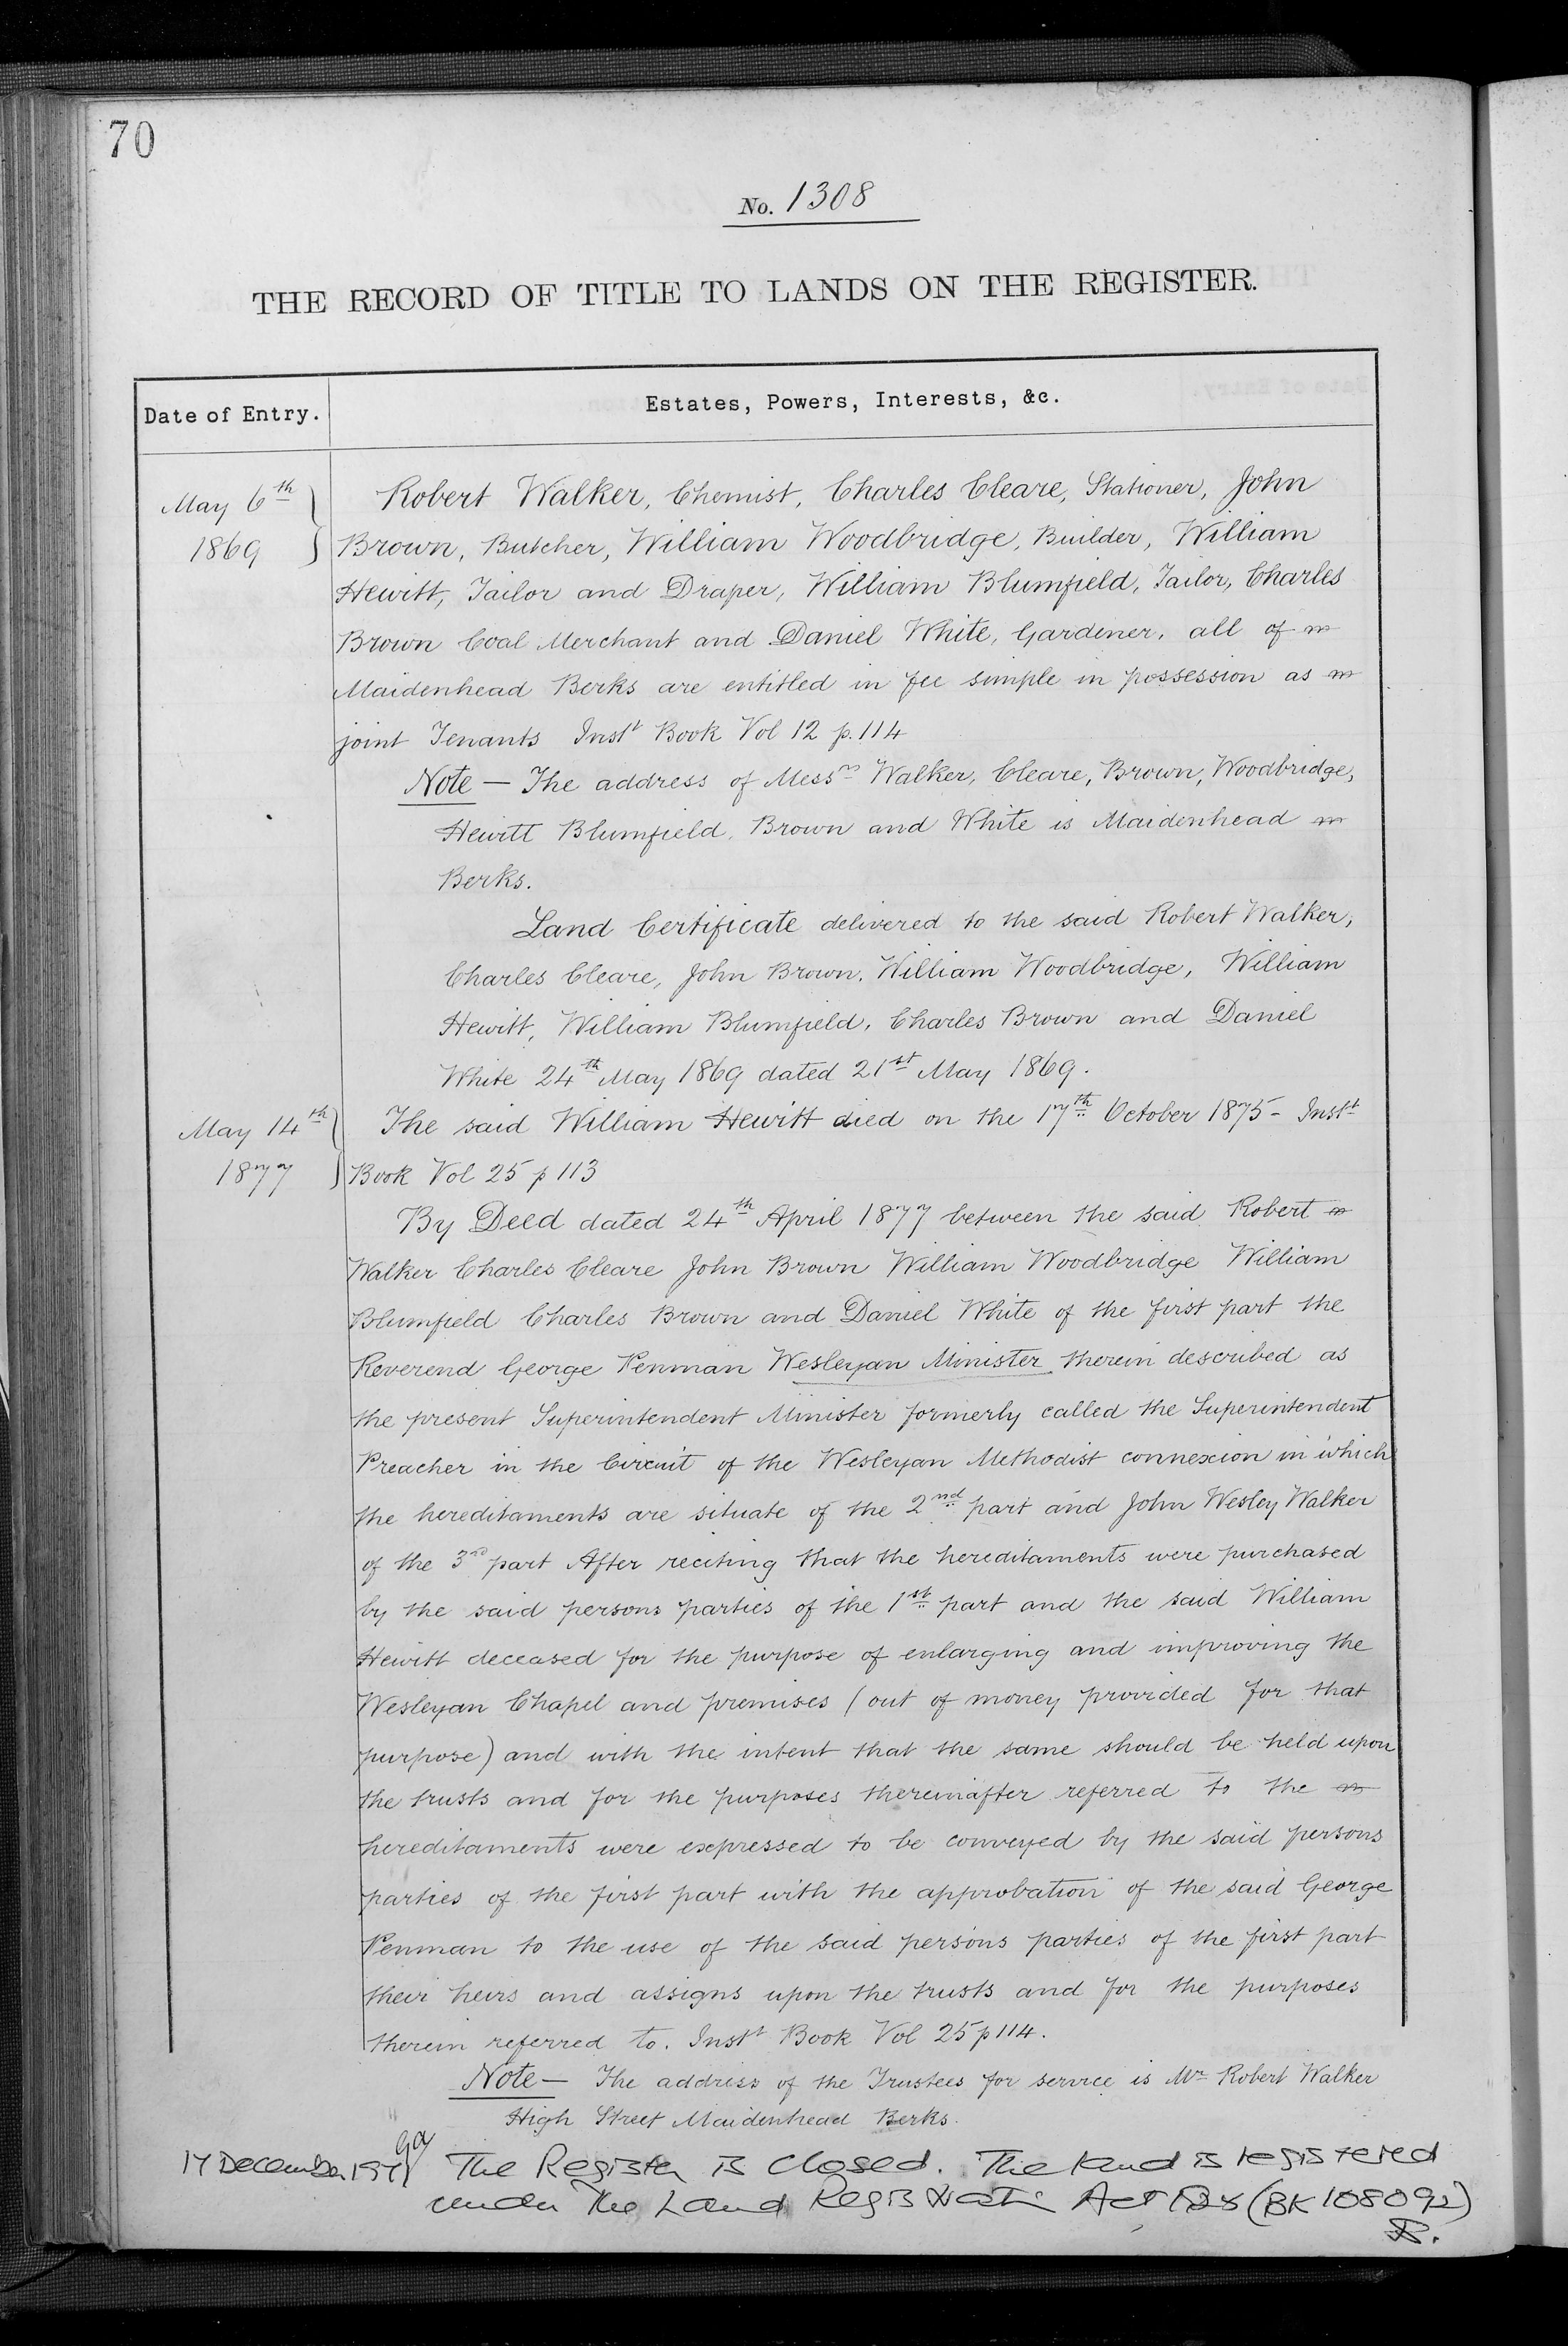 70
No. 1308
THE RECORD OF TITLE TO LANDS ON THE REGISTER.
Date of Entry.
Estates, Powers, Interests, &c.
May 6th
1869
Robert Walker, Chemist, Charles Cleare, Stationer, John
Brown, Butcher, William Woodbridge, Builder, William
Hewitt, Tailor and Draper, William Blumfield, Tailor, Charles
Brown Coal Merchant and Daniel White, Gardener, all of
Maidenhead Berks are entitled in fee simple in possession as
joint Tenants Instt Book Vol 12 p. 114
Note — The address of Messrs Walker, Cleare, Brown, Woodbridge,
Hewitt Blumfield, Brown and White is Maidenhead
Berks.
Land Certificate delivered to the said Robert Walker,
Charles Cleare, John Brown, William Woodbridge, William
Hewitt, William Blumfield, Charles Brown and Daniel
White 24th May 1869 dated 21st May 1869.
May 14th
1877
The said William Hewitt died on the 17th October 1875 - Instt
Book Vol 25 p 113
By Deed dated 24th April 1877 between the said Robert
Walker Charles Cleare John Brown William Woodbridge William
Blumfield Charles Brown and Daniel White of the first part the
Reverend George Penman Wesleyan Minister therein described as
the present Superintendent Minister formerly called the Superintendent
Preacher in the Circuit of the Wesleyan Methodist connexion in which
the hereditaments are situate of the 2nd part and John Wesley Walker
of the 3rd part After reciting that the hereditaments were purchased
by the said persons parties of the 1st part and the said William
Hewitt deceased for the purpose of enlarging and improving the
Wesleyan Chapel and premises (out of money provided for that
purpose) and with the intent that the same should be held upon
the trusts and for the purposes thereinafter referred to the
hereditaments were expressed to be conveyed by the said persons
parties of the first part with the approbation of the said George
Penman to the use of the said persons parties of the first part
their heirs and assigns upon the trusts and for the purposes
therein referred to. Instt Book Vol 25 p 114.
Note — The address of the Trustees for service is Mr Robert Walker
High Street Maidenhead Berks.
17 December The Register is closed. The land is registered
under The Land Registration Act (BK 108092)